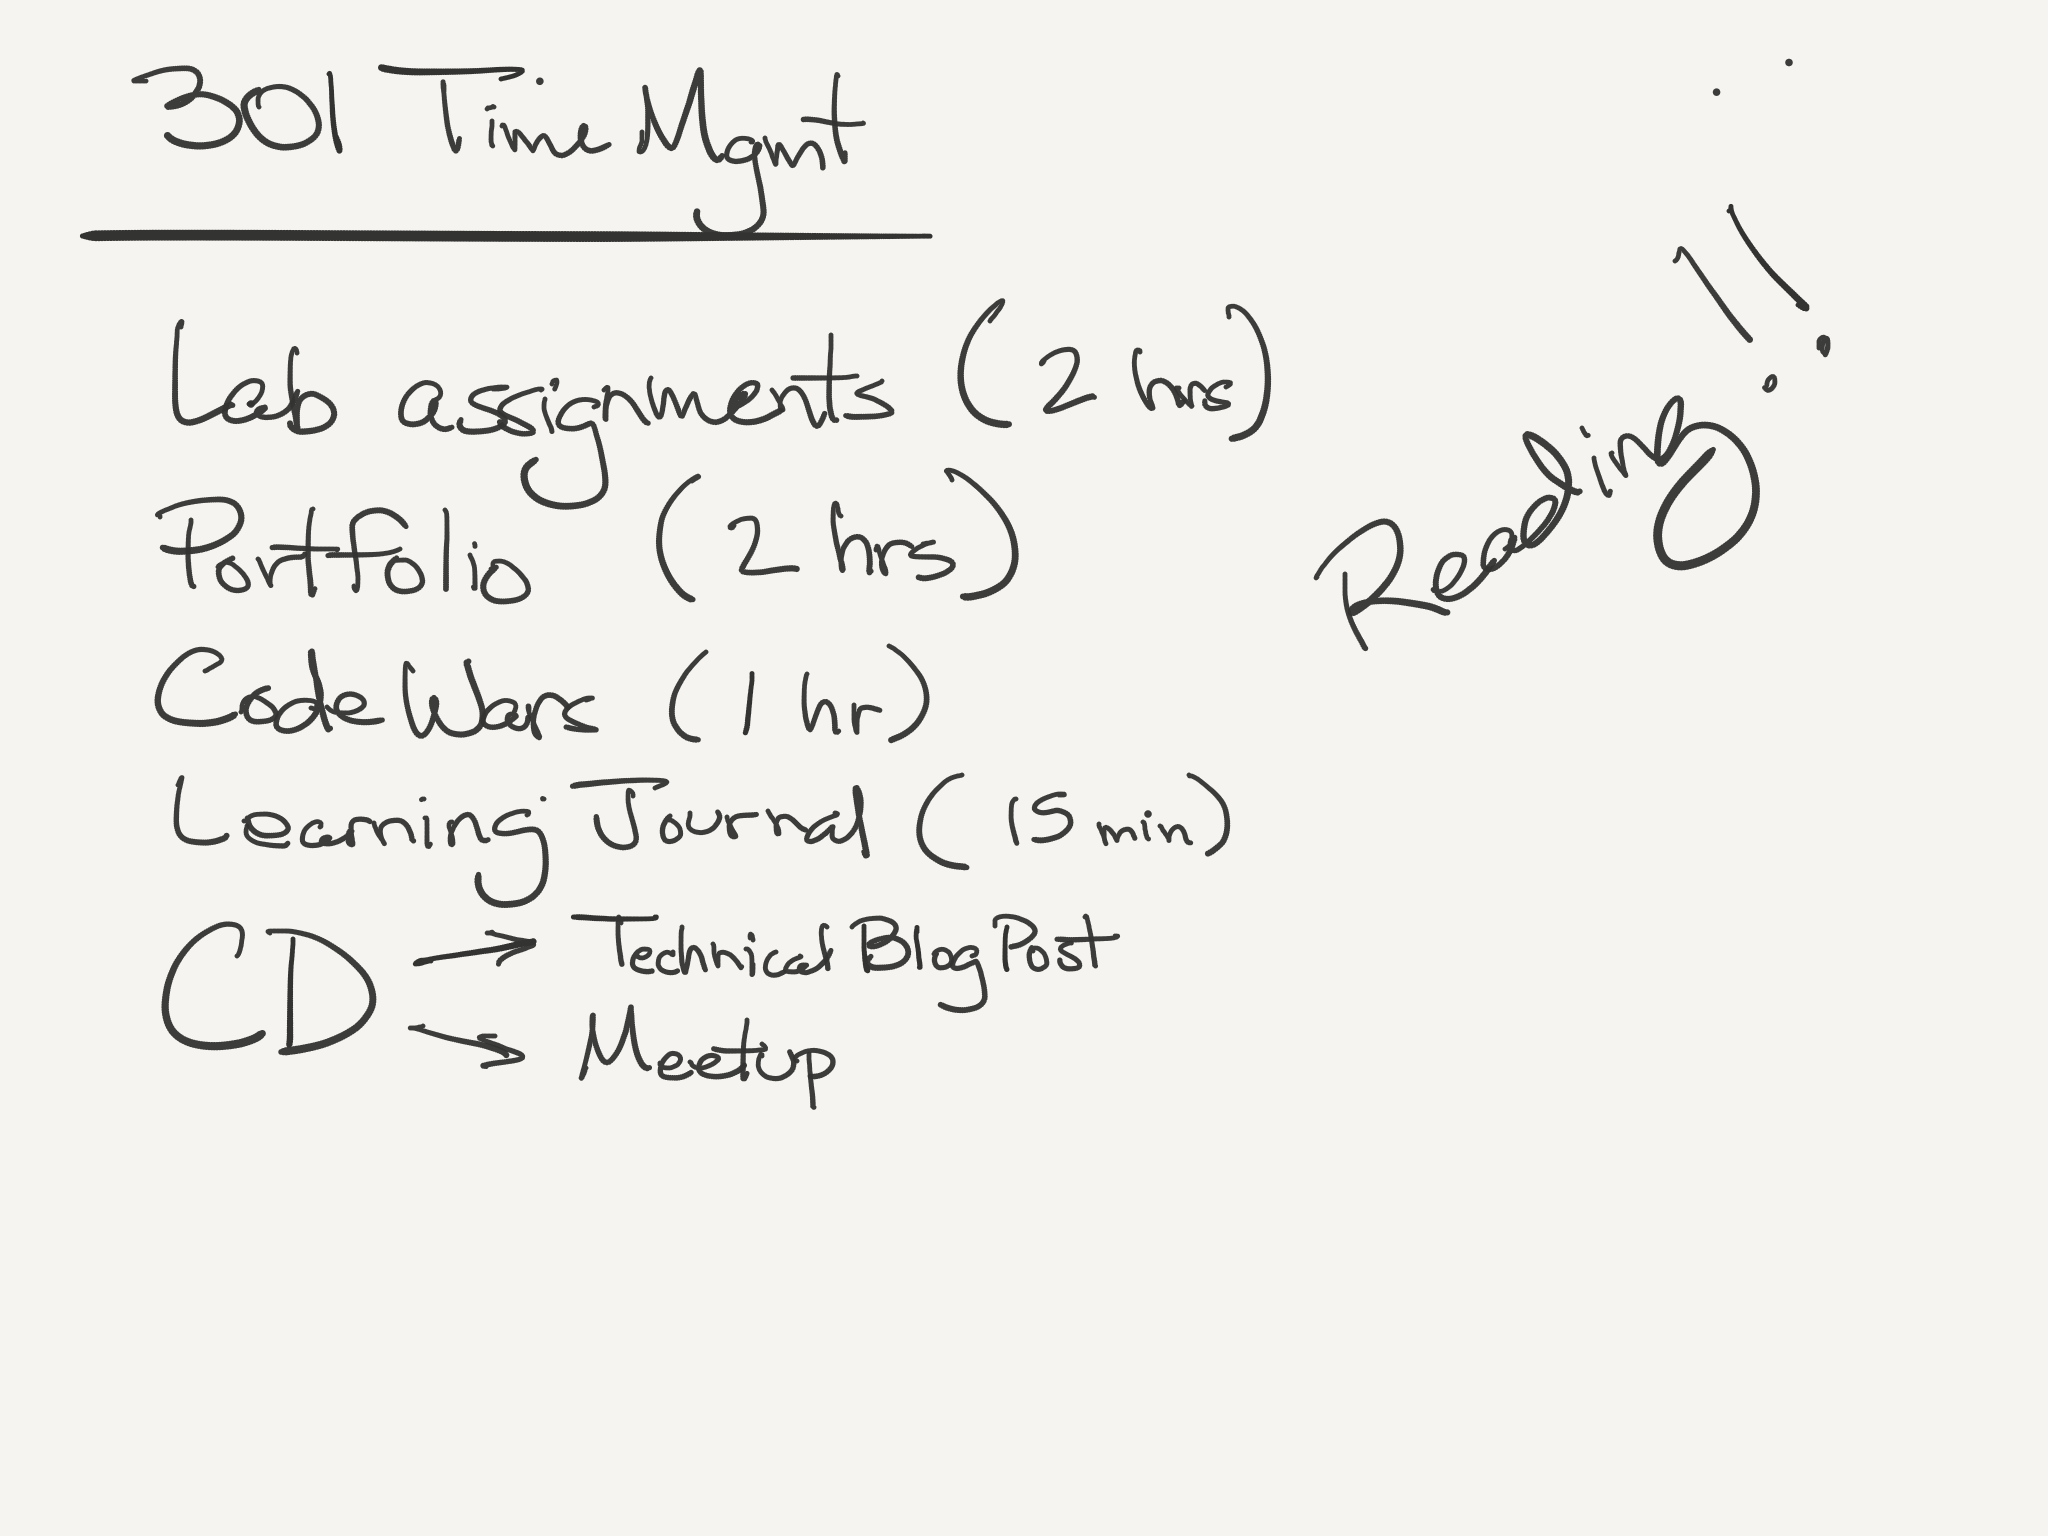 301 Time Mgmt
Lab assignments (2 hrs)
Portfolio (2 hrs)
Code Wars (1 hr)
Learning Journal (15 min)
CD → Technical Blog Post
→ Meetup
Reading!!